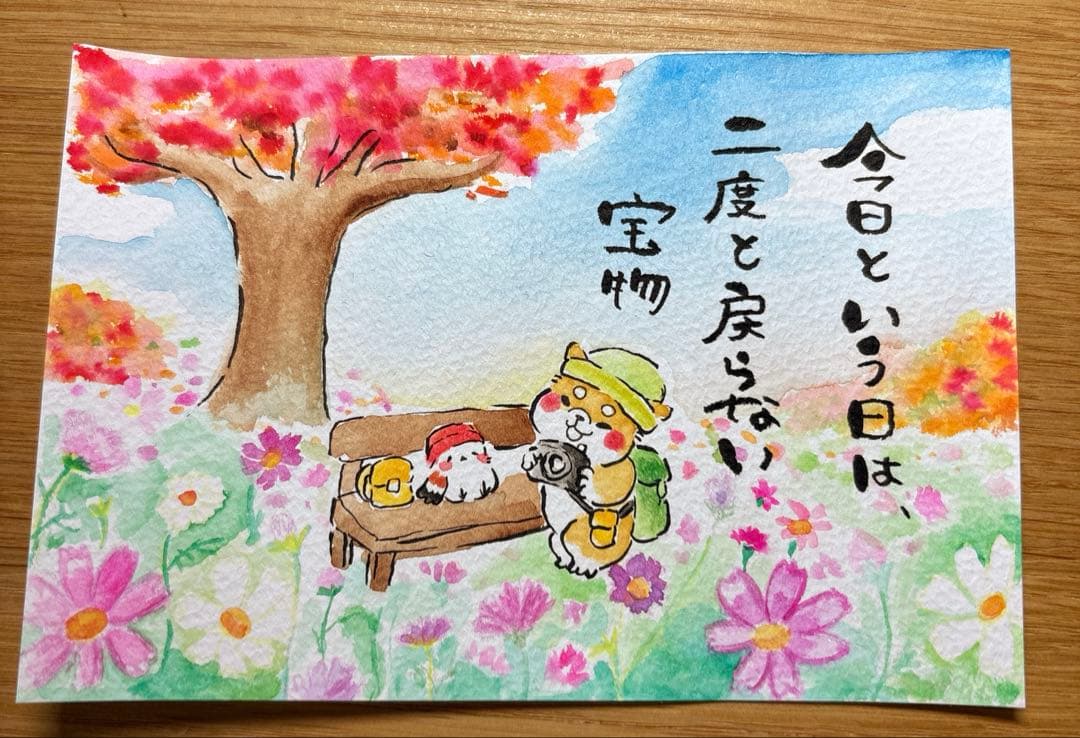 今日という日は、
二度と戻らない
宝物